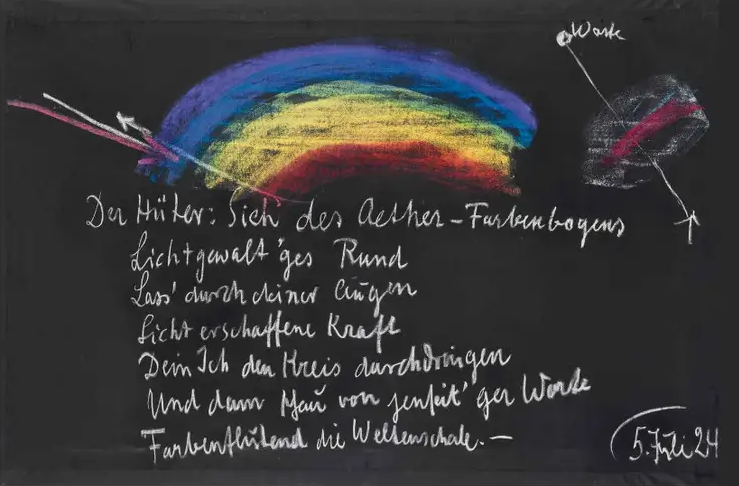 Warte
Der Hüter: Sieh des Aether-Farbenbogens
Lichtgewalt'ges Rund
Lass' durch deiner Augen
Lichterschaffene Kraft
Dein Ich den Kreis durchdringen
Und dann schau von jenseit'ger Warte
Farbenflutend die Weltenschale. —
5. Juli 24